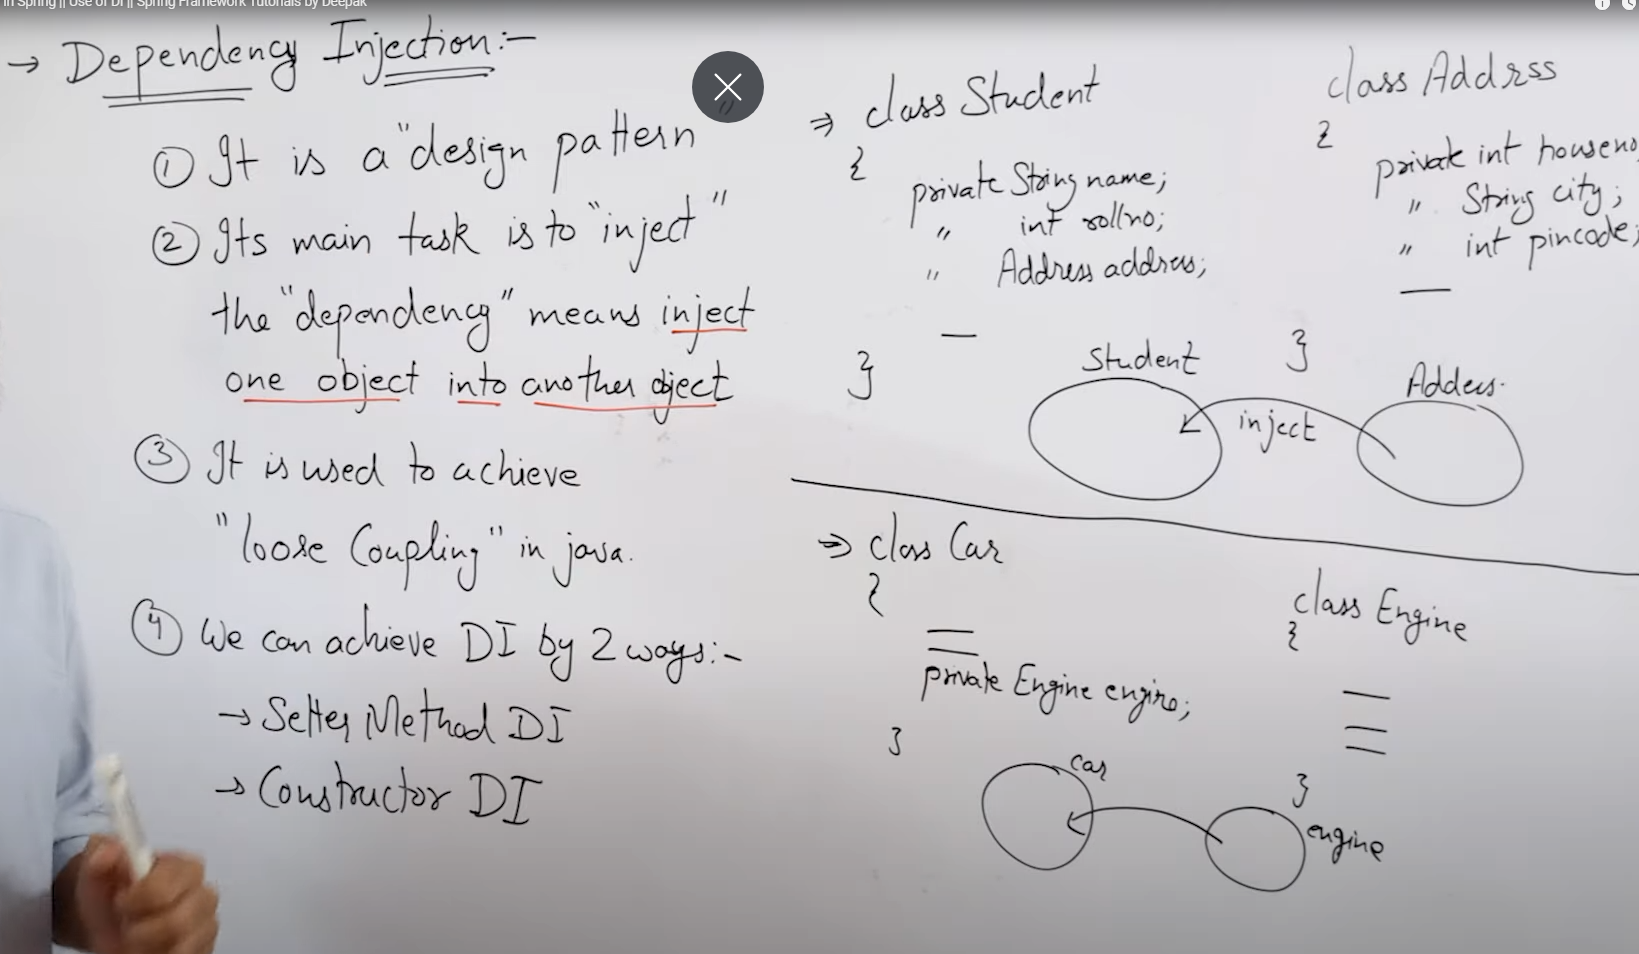 in Spring || Use of DI || Spring Framework Tutorials by Deepak
→ Dependency Injection:-
① It is a "design pattern"
② Its main task is to "inject"
the "dependency" means inject
one object into another oject
③ It is used to achieve
"loose Coupling" in java.
④ We can achieve DI by 2 ways:-
→ Setter Method DI
→ Constructor DI
⇒ class Student
{
private String name;
" int rollno;
" Address address;
—
}
class Address
{
private int houseno;
" String city;
" int pincode;
—
}
Student
inject
Address
⇒ class Car
{
private Engine engine;
}
class Engine
{
}
car
engine